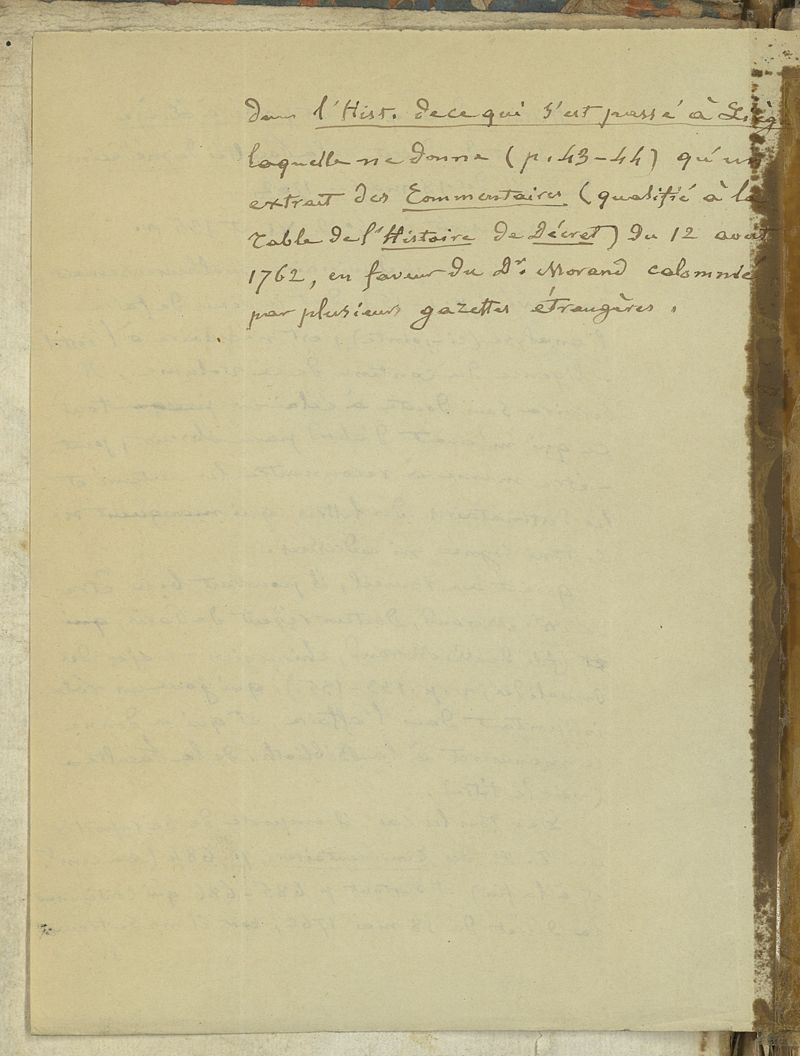 dans l'Hist. de ce qui s'est passé à Liég
laquelle ne donne (p. 43-44) qu'un
extrait des Commentaires (qualifié à la
Table de l'Histoire de Décret) du 12 aout
1762, en faveur du Dr. Morand calomnié
par plusieurs gazettes étrangères.